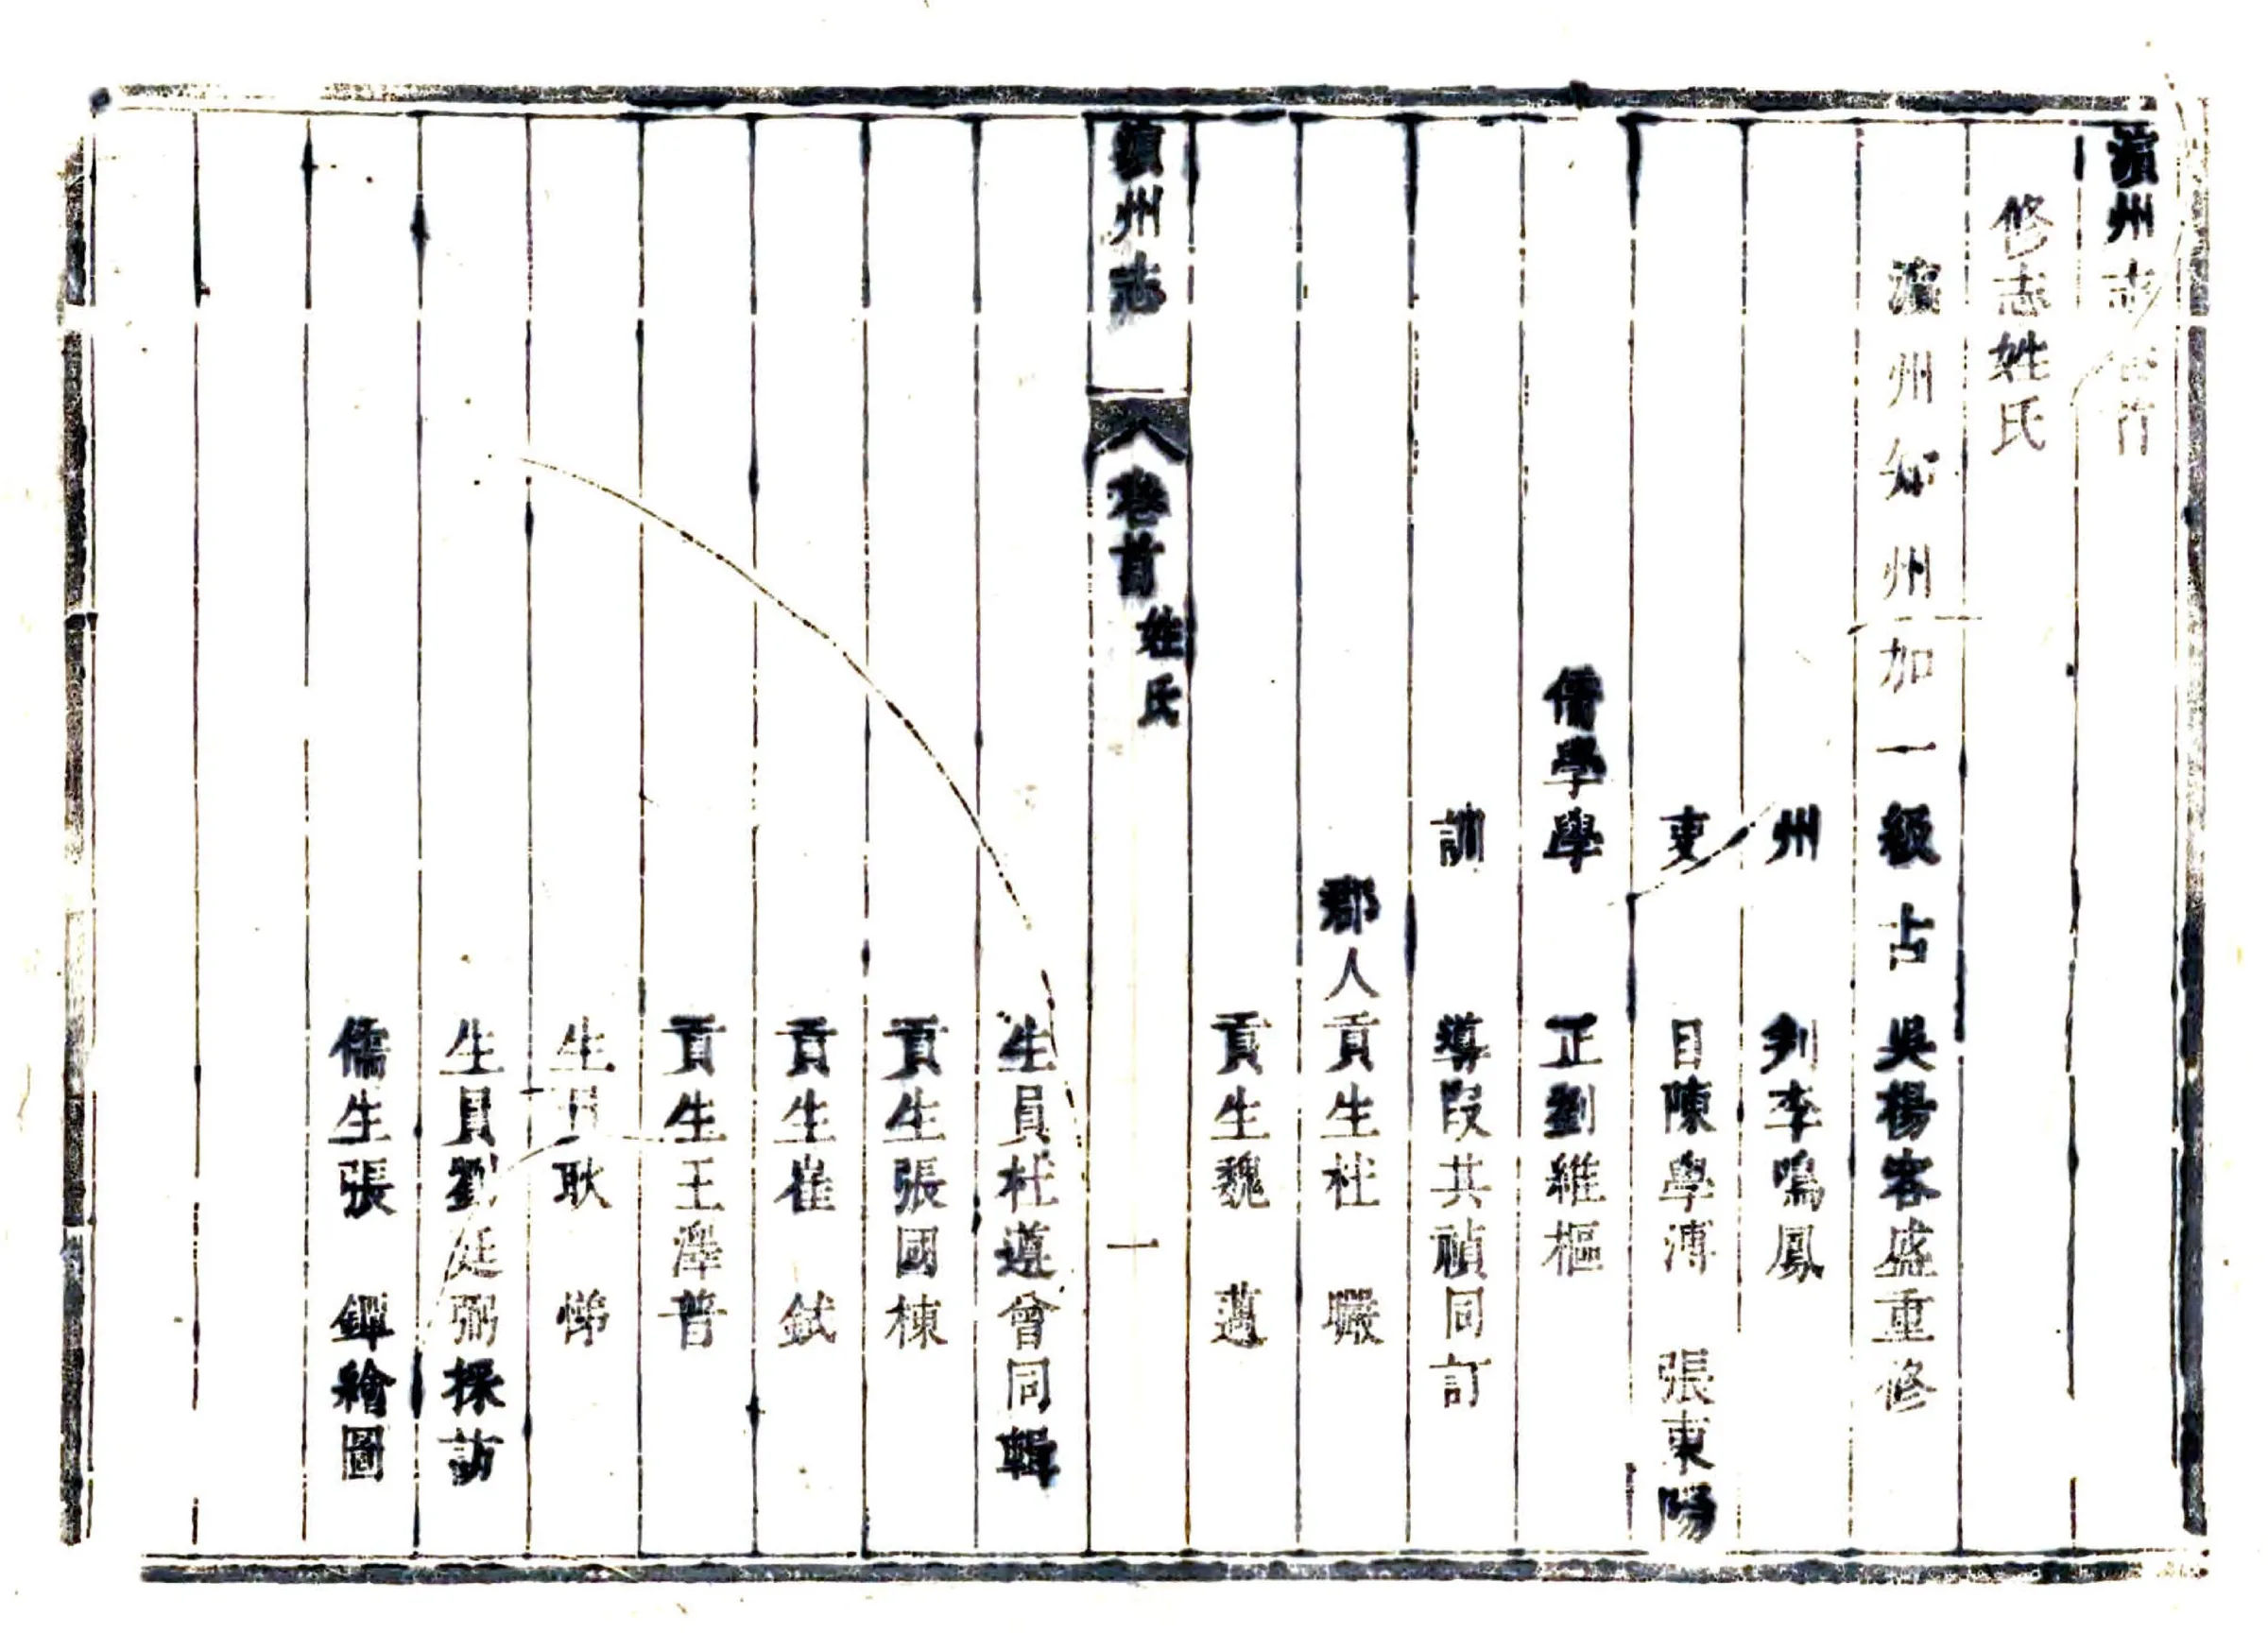 濵州志卷首
修志姓氏
濵州知州加一級古吳楊容盛重修
州判李鳴鳳
吏目陳學溥 張東陽
儒學學正劉維樞
訓導段共禎同訂
郡人貢生杜曮
貢生魏邁
濵州志 卷首 姓氏 一
生員杜遵曾同輯
貢生張國棟
貢生崔鉽
貢生王澤普
生員耿悌
生員劉廷弼採訪
儒生張鐔繪圖